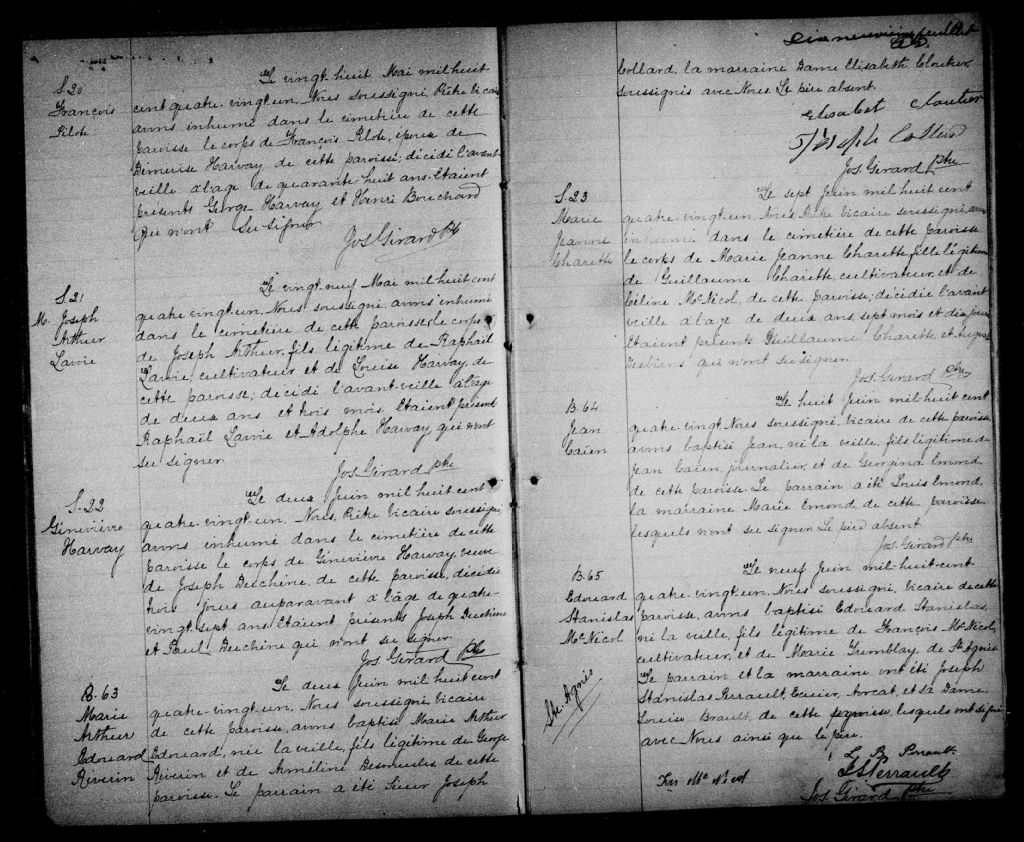 S. 20
François
Pilote
Le vingt-huit Mai mil huit
cent quatre-vingt un, Nous soussigné Prêtre Vicaire
avons inhumé dans le cimetière de cette
paroisse le corps de François Pilote, époux de
Démerise Harvay de cette paroisse, décédé l'avant
veille à l'âge de quarante-huit ans. Etaient
présents George Harvay et Henri Bouchard
qui n'ont su signer.
Jos. Girard Ptre
S. 21
M. Joseph
Arthur
Lavoie
Le vingt neuf Mai mil huit cent
quatre-vingt un, Nous soussigné, avons inhumé
dans le cimetière de cette paroisse, le corps
de Joseph Arthur, fils légitime de Raphaïl
Lavoie, cultivateur et de Louise Harvay, de
cette paroisse; décédé l'avant-veille à l'âge
de deux ans et trois mois. Etaient présent
Raphaïl Lavoie et Adolphe Harvay qui n'ont
su signer.
Jos. Girard Ptre
S. 22
Geneviève
Harvay
Le deux Juin mil huit cent
quatre-vingt un, Nous, Prêtre Vicaire soussigné
avons inhumé dans le cimetière de cette
paroisse le corps de Geneviève Harvay, veuve
de Joseph Duchêne, de cette paroisse, décédée
trois jours auparavant à l'âge de quatre-
vingt sept ans. Etaient présents Joseph Duchêne
et Paul Duchêne qui n'ont su signer.
Jos. Girard Ptre
B. 63
Marie
Arthur
Edouard
Riverin
Le deux Juin mil huit cent
quatre-vingt un, Nous soussigné, vicaire
de cette paroisse, avons baptisé Marie Arthur
Edouard, née la veille, fils légitime de George
Riverin et de Améline Desmeules de cette
paroisse. Le parrain a été Sieur Joseph
Collard, la marraine Dame Elisabeth Cloutier,
soussignés avec Nous. Le père absent.
Elisabet Cloutier
Joseph Collard
Jos. Girard Ptre
S. 23
Marie
Jeanne
Charette
Le sept Juin mil huit cent
quatre-vingt un, Nous, Prêtre Vicaire soussigné, avons
inhumé dans le cimetière de cette paroisse
le corps de Marie Jeanne Charette, fille légitime
de Guillaume Charette, cultivateur, et de
Céline McNicol, de cette paroisse; décédée l'avant
veille à l'âge de deux ans, sept mois et dix jours
Etaient présents Guillaume Charette et
qui n'ont su signer.
Jos. Girard Ptre
B. 64
Jean
Caïen
Le huit Juin mil huit cent
quatre-vingt, Nous soussigné, vicaire de cette paroisse
avons baptisé Jean, né la veille, fils légitime de
Jean Caïen, journalier, et de Georgina Emond,
de cette paroisse. Le parrain a été Louis Emond,
la marraine Marie Emond, de cette paroisse
lesquels n'ont su signer. Le père absent.
Jos. Girard Ptre
B. 65
Edouard
Stanislas
McNicol
Ste Agnès
Le neuf Juin mil huit cent
quatre-vingt un, Nous soussigné, vicaire de cette
paroisse, avons baptisé Edouard Stanislas,
né la veille, fils légitime de François McNicol,
cultivateur, et de Marie Tremblay, de Ste Agnès
Le parrain et la marraine ont été Joseph
Stanislas Perrault, Ecuier, Avocat, et sa Dame
Louise Brault, de cette paroisse, lesquels ont signé
avec Nous ainsi que le père.
L. B. Perrault
J S Perrault
Frs McNicol
Jos. Girard Ptre